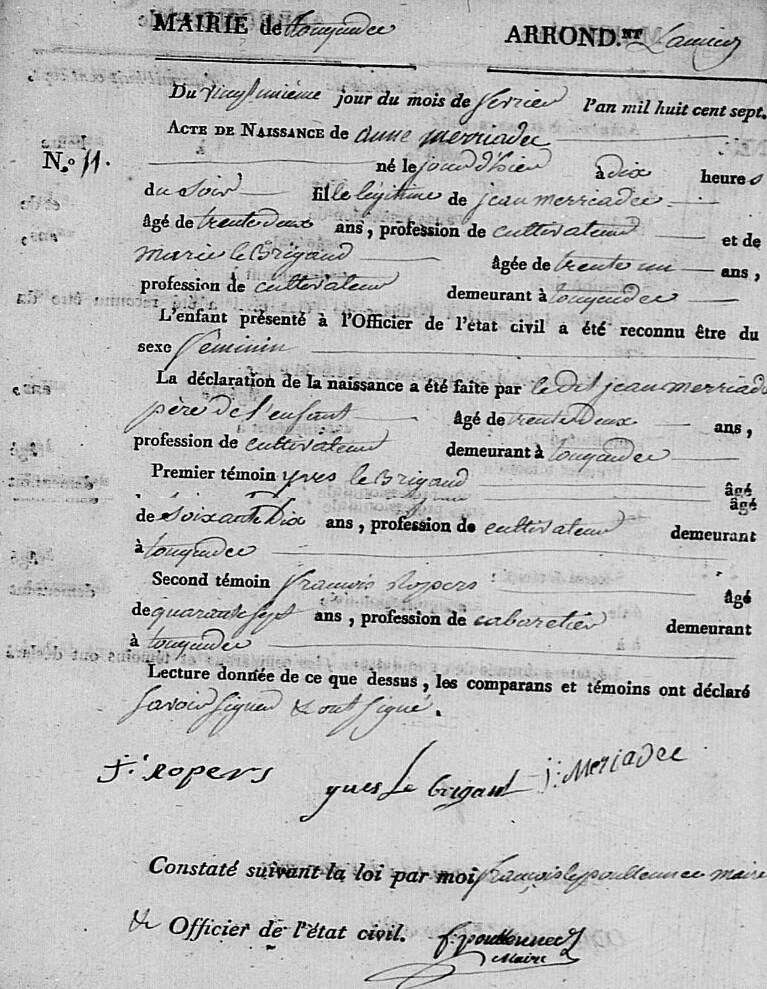 MAIRIE de tonquedec ARROND.NT Lannion
Du vingt unième jour du mois de fevrier l'an mil huit cent sept.
ACTE DE NAISSANCE de anne merriadec
N.o 11. né le jour d'hier à dix heures
du soir fille légitime de jean merriadec
âgé de trente deux ans, profession de cultivateur et de
marie le Brigand âgée de trente un ans,
profession de cultivateur demeurant à tonquedec
L'enfant présenté à l'Officier de l'état civil a été reconnu être du
sexe féminin
La déclaration de la naissance a été faite par ledit jean merriadec
père de l'enfant âgé de trente deux ans,
profession de cultivateur demeurant à tonquedec
Premier témoin yves le Brigand âgé
âgé
de soixante Dix ans, profession de cultivateur demeurant
à tonquedec
Second témoin francois ropers âgé
de quarante sept ans, profession de cabaretier demeurant
à tonquedec
Lecture donnée de ce que dessus, les comparans et témoins ont déclaré
savoir signer & ont signé.
f: ropers yves Le brigant j: Meriadec
Constaté suivant la loi par moi francois le poullennec maire
& Officier de l'état civil. f. poullennec
Maire